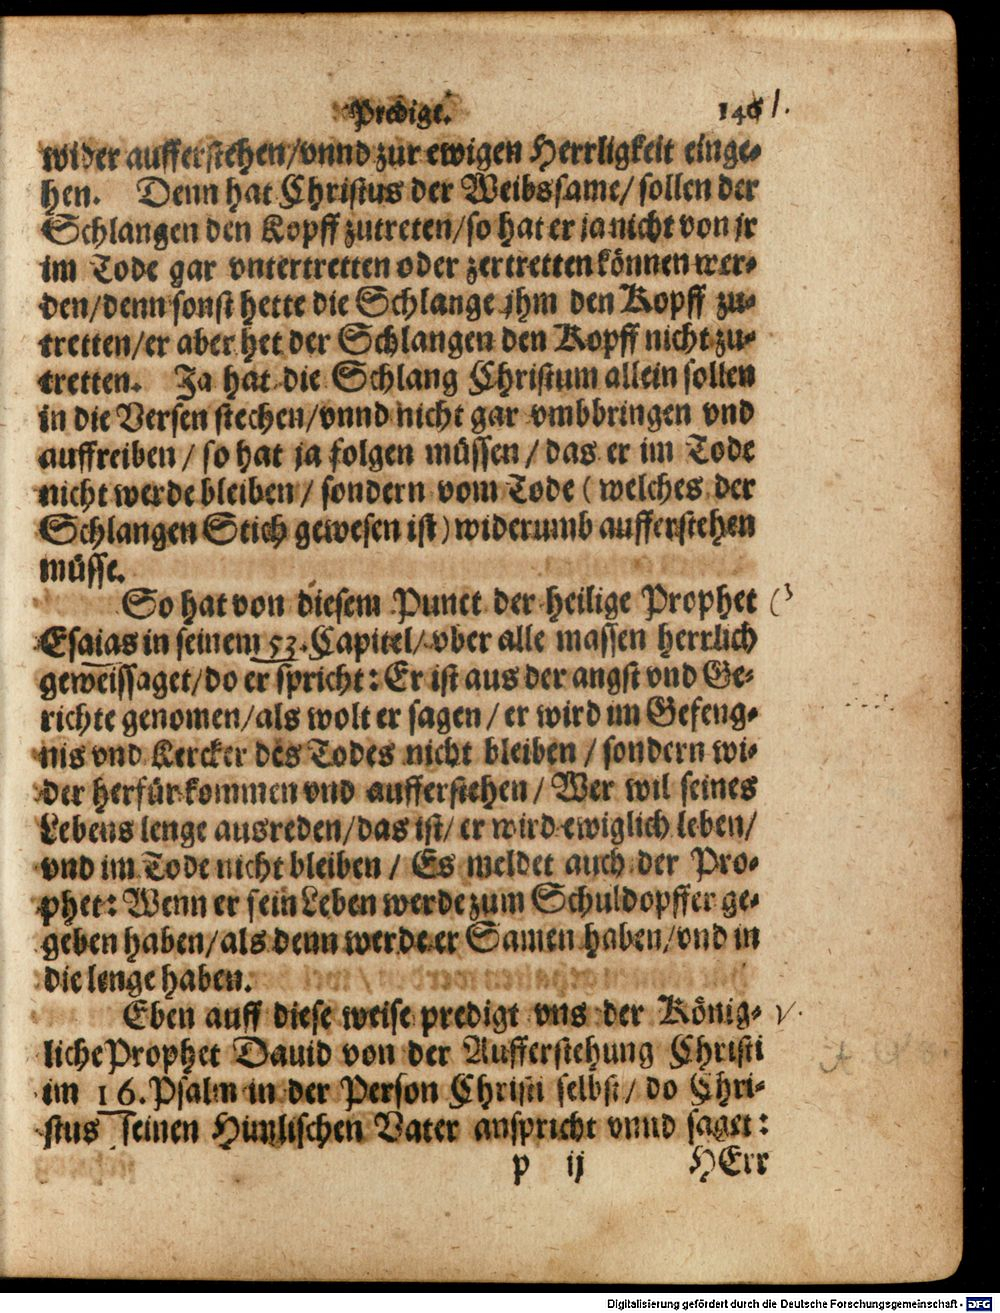 Predigt. 146 1.
wider aufferstehen/vnnd zur ewigen Herrligkeit einge-
hen. Denn hat Christus der Weibssame/ sollen der
Schlangen den Kopff zutreten/so hat er ja nicht von jr
im Tode gar vntertretten oder zertretten können wer-
den/denn sonst hette die Schlange jhm den Kopff zu-
tretten/er aber het der Schlangen den Kopff nicht zu-
tretten. Ja hat die Schlang Christum allein sollen
in die Versen stechen/vnnd nicht gar vmbbringen vnd
auffreiben / so hat ja folgen müssen / das er im Tode
nicht werde bleiben / sondern vom Tode ( welches der
Schlangen Stich gewesen ist ) widerumb aufferstehen
müsse.
So hat von diesem Punct der heilige Prophet
Esaias in seinem 53. Capitel/ vber alle massen herrlich
geweissaget/do er spricht: Er ist aus der angst vnd Ge-
richte genomen/als wolt er sagen / er wird im Gefeng-
nis vnd Kercker des Todes nicht bleiben / sondern wi-
der herfür kommen vnd aufferstehen / Wer wil seines
Lebens lenge ausreden/das ist/ er wird ewiglich leben/
vnd im Tode nicht bleiben / Es meldet auch der Pro-
phet: Wenn er sein Leben werde zum Schuldopffer ge-
geben haben/als denn werde er Samen haben/vnd in
die lenge haben.
Eben auff diese weise predigt vns der König-
liche Prophet Dauid von der Aufferstehung Christi
im 16. Psalm in der Person Christi selbst/ do Chri-
stus seinen Himlischen Vater anspricht vnnd saget:
p ij HErr
Digitalisierung gefördert durch die Deutsche Forschungsgemeinschaft - DFG